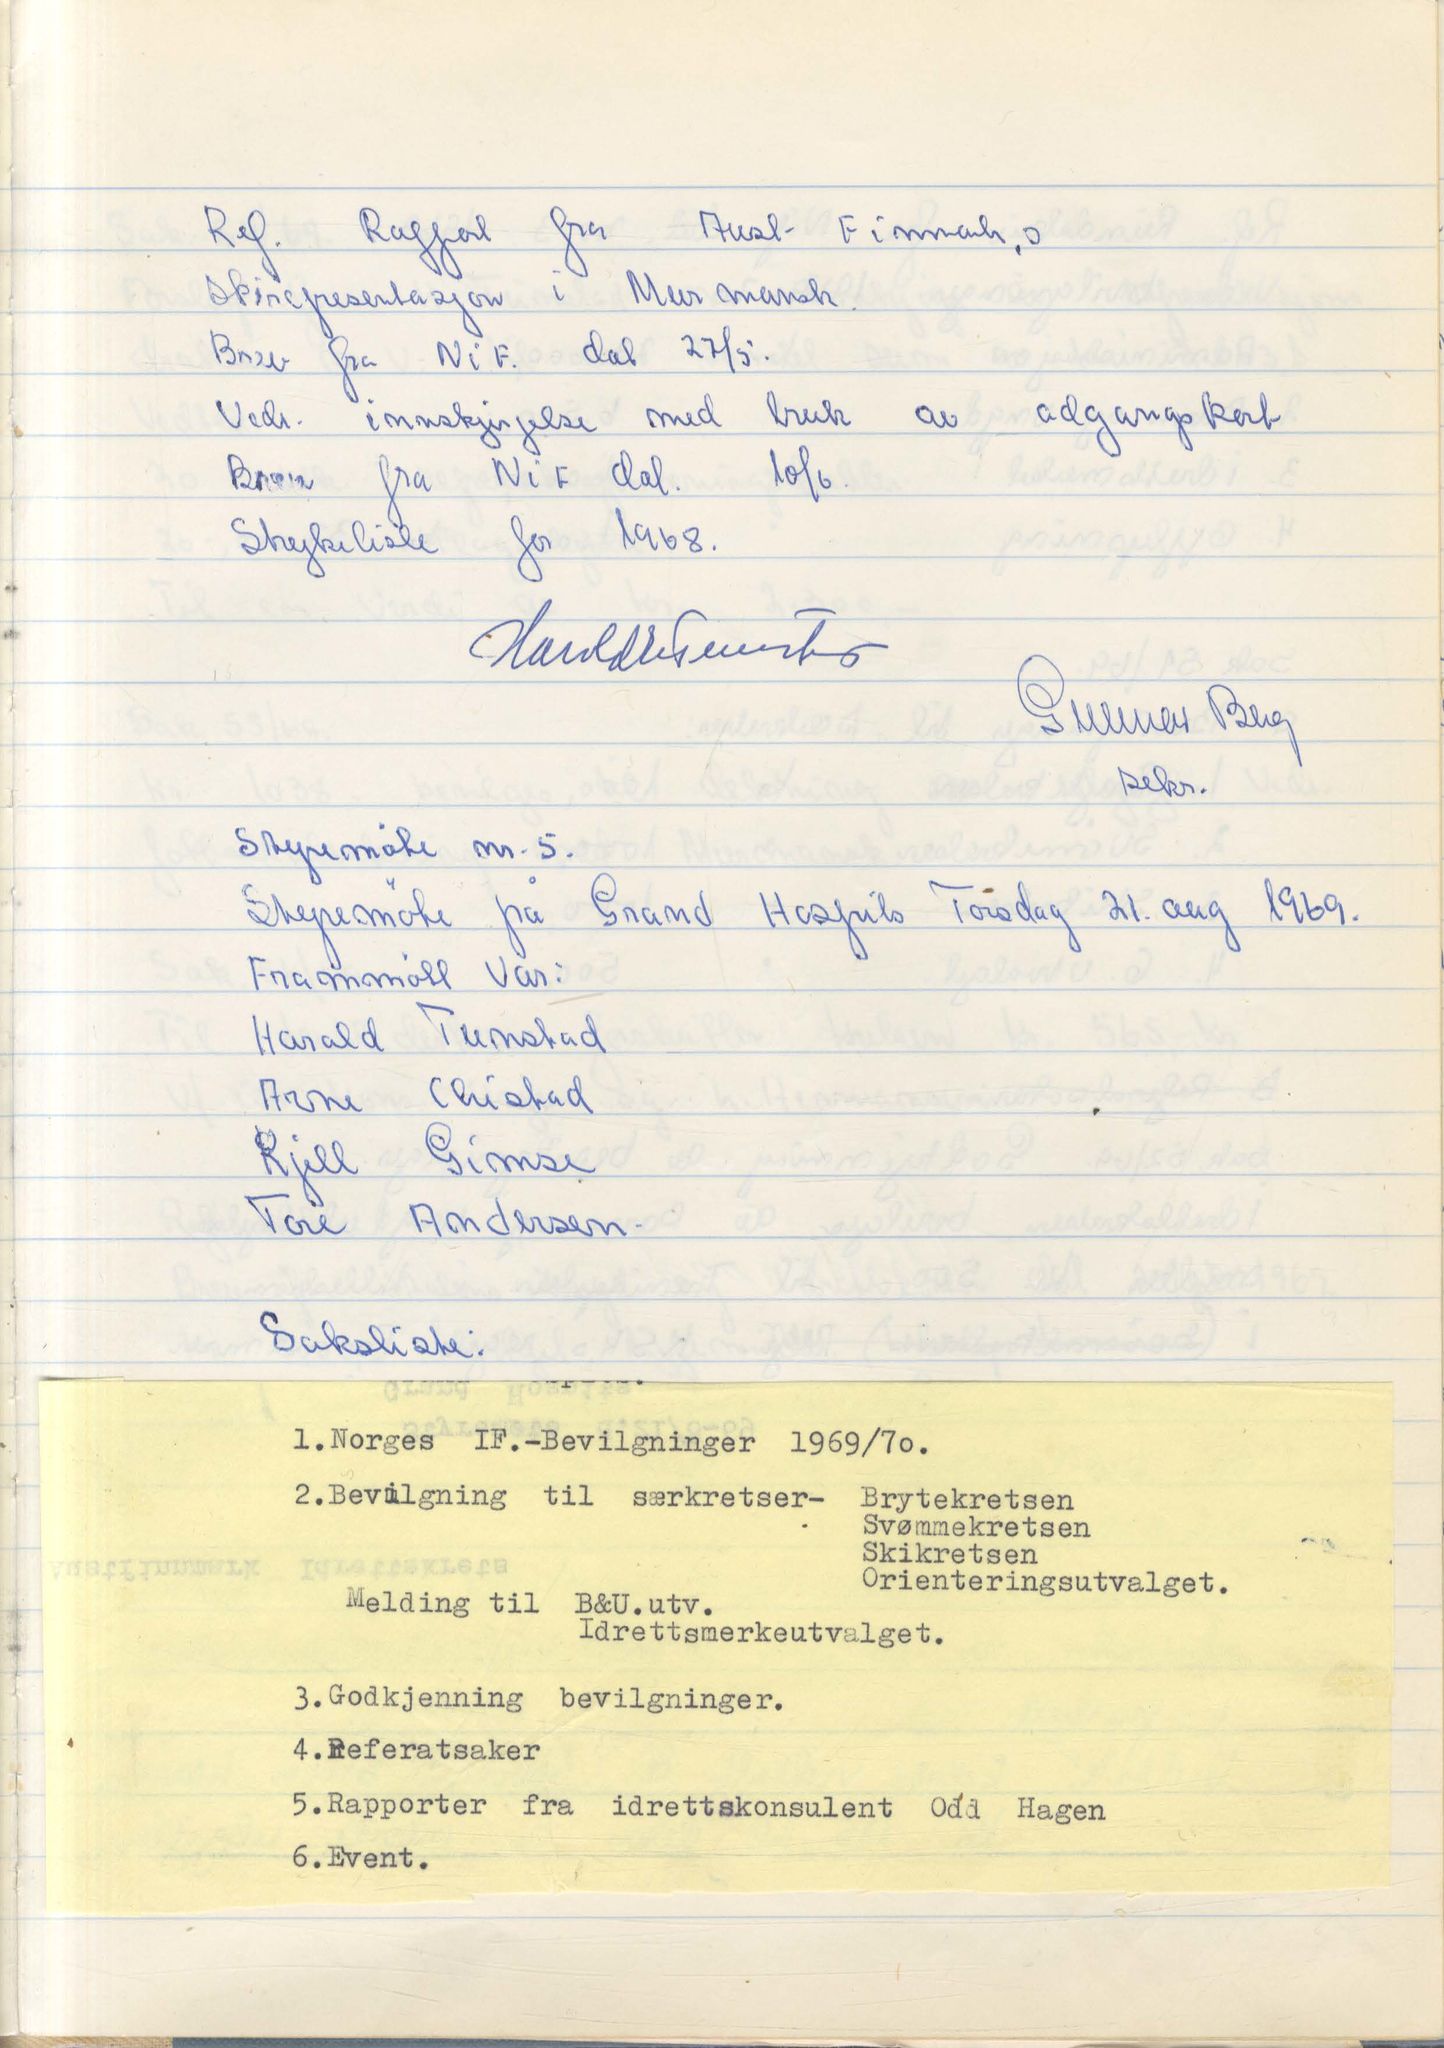 Ref. Rapport fra Aust-Finnmark,s
Skirepresentasjon i Murmansk.
Brev fra NiF. dat 27/5.
Vedr. innskjerpelse med bruk av adgangskort
Brev fra NiF dat. 10/6.
Strykeliste for 1968.
Gunnar Berg
sekr.
Styremöte nr. 5.
Styremöte på Grand Hospits Torsdag 21. aug 1969.
Frammött var:
Harald Tunstad
Arne
Kjell Gimse
Tore Andersen.
Saksliste:
1.Norges IF.-Bevilgninger 1969/7o.
2.Bevilgning til særkretser- Brytekretsen
Svømmekretsen
Skikretsen
Orienteringsutvalget.
Melding til B&U.utv.
Idrettsmerkeutvalget.
3.Godkjenning bevilgninger.
4.Referatsaker
5.Rapporter fra idrettskonsulent Odd Hagen
6.Event.